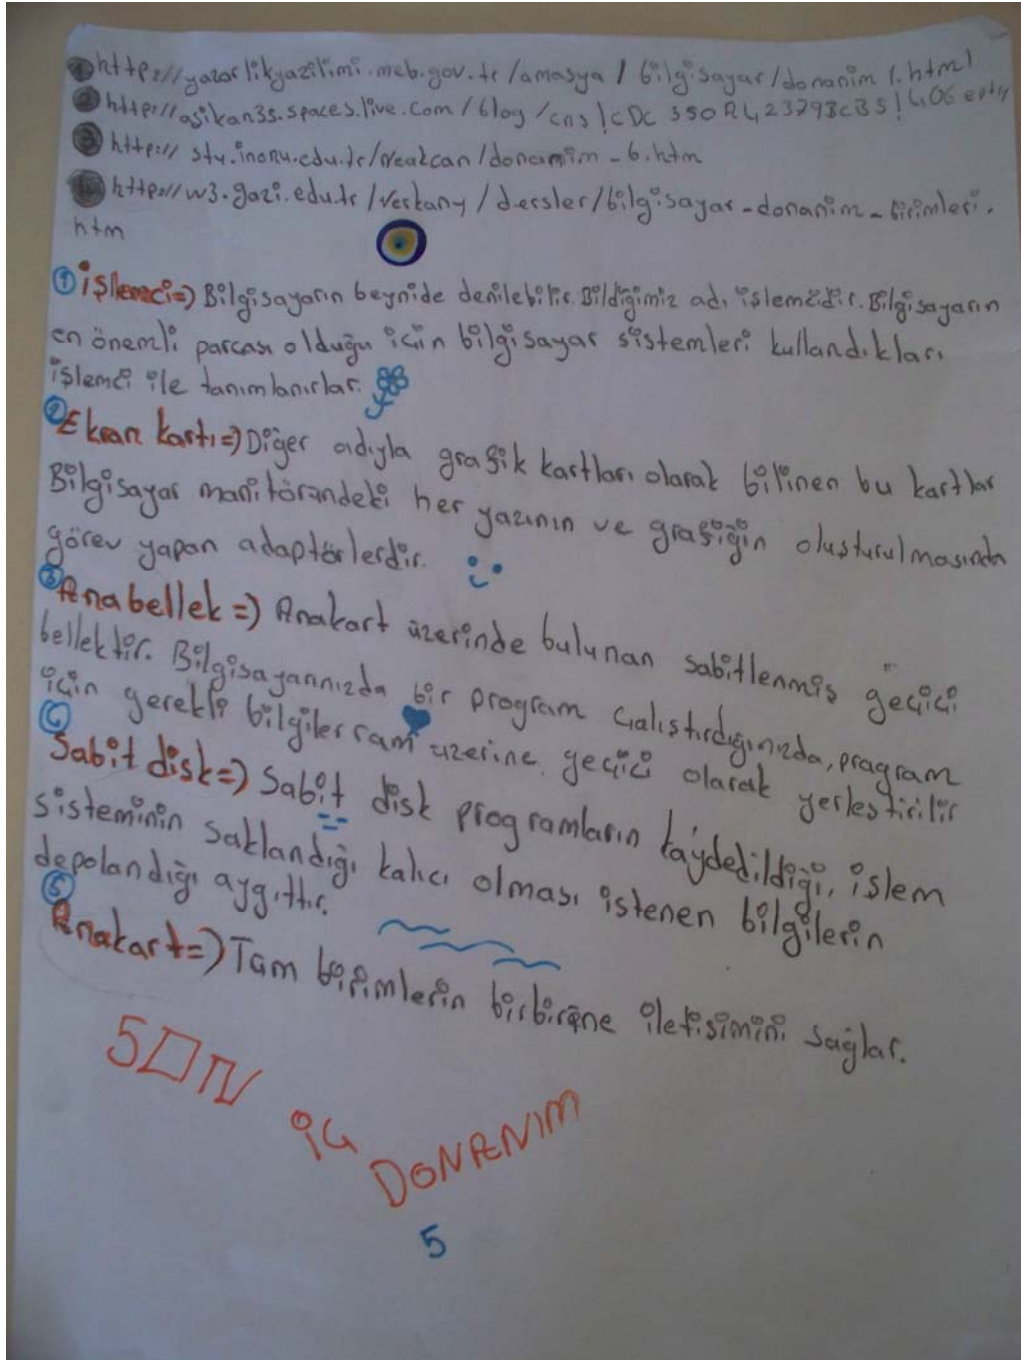 1 http://yazarlikyazilimi.meb.gov.tr/amasya/bilgisayar/donanim1.html
2 http://asikan35.spaces.live.com/blog/cns!CDC350R423798CB5!406.entry
3 http:// stu.inonu.edu.tr/
4 http://w3.gazi.edu.tr/verkany/dersler/bilgisayar-donanim-birimleri.
htm
1 işlemci=) Bilgisayarın beynide denilebilir. Bildiğimiz adı işlemcidir. Bilgisayarın
en önemli parcası olduğu için bilgisayar sistemleri kullandıkları
işlemci ile tanımlanırlar.
2 Ekran kartı=) Diğer adıyla grafik kartları olarak bilinen bu kartlar
Bilgisayar manitöründeki her yazının ve grafiğin oluşturulmasında
görev yapan adaptörlerdir.
3 Anabellek=) Anakart üzerinde bulunan sabitlenmiş geçici
bellektir. Bilgisayarınızda bir program çalıştırdığınızda, program
için gerekli bilgiler ram üzerine geçici olarak yerleştirilir
4
Sabit disk=) Sabit disk programların kaydedildiği, işlem
sisteminin saklandığı kalıcı olması istenen bilgilerin
depolandığı aygıttır.
5
Anakart=) Tam birimlerin birbirine iletişimini sağlar.
SON
iç
DONANIM
5